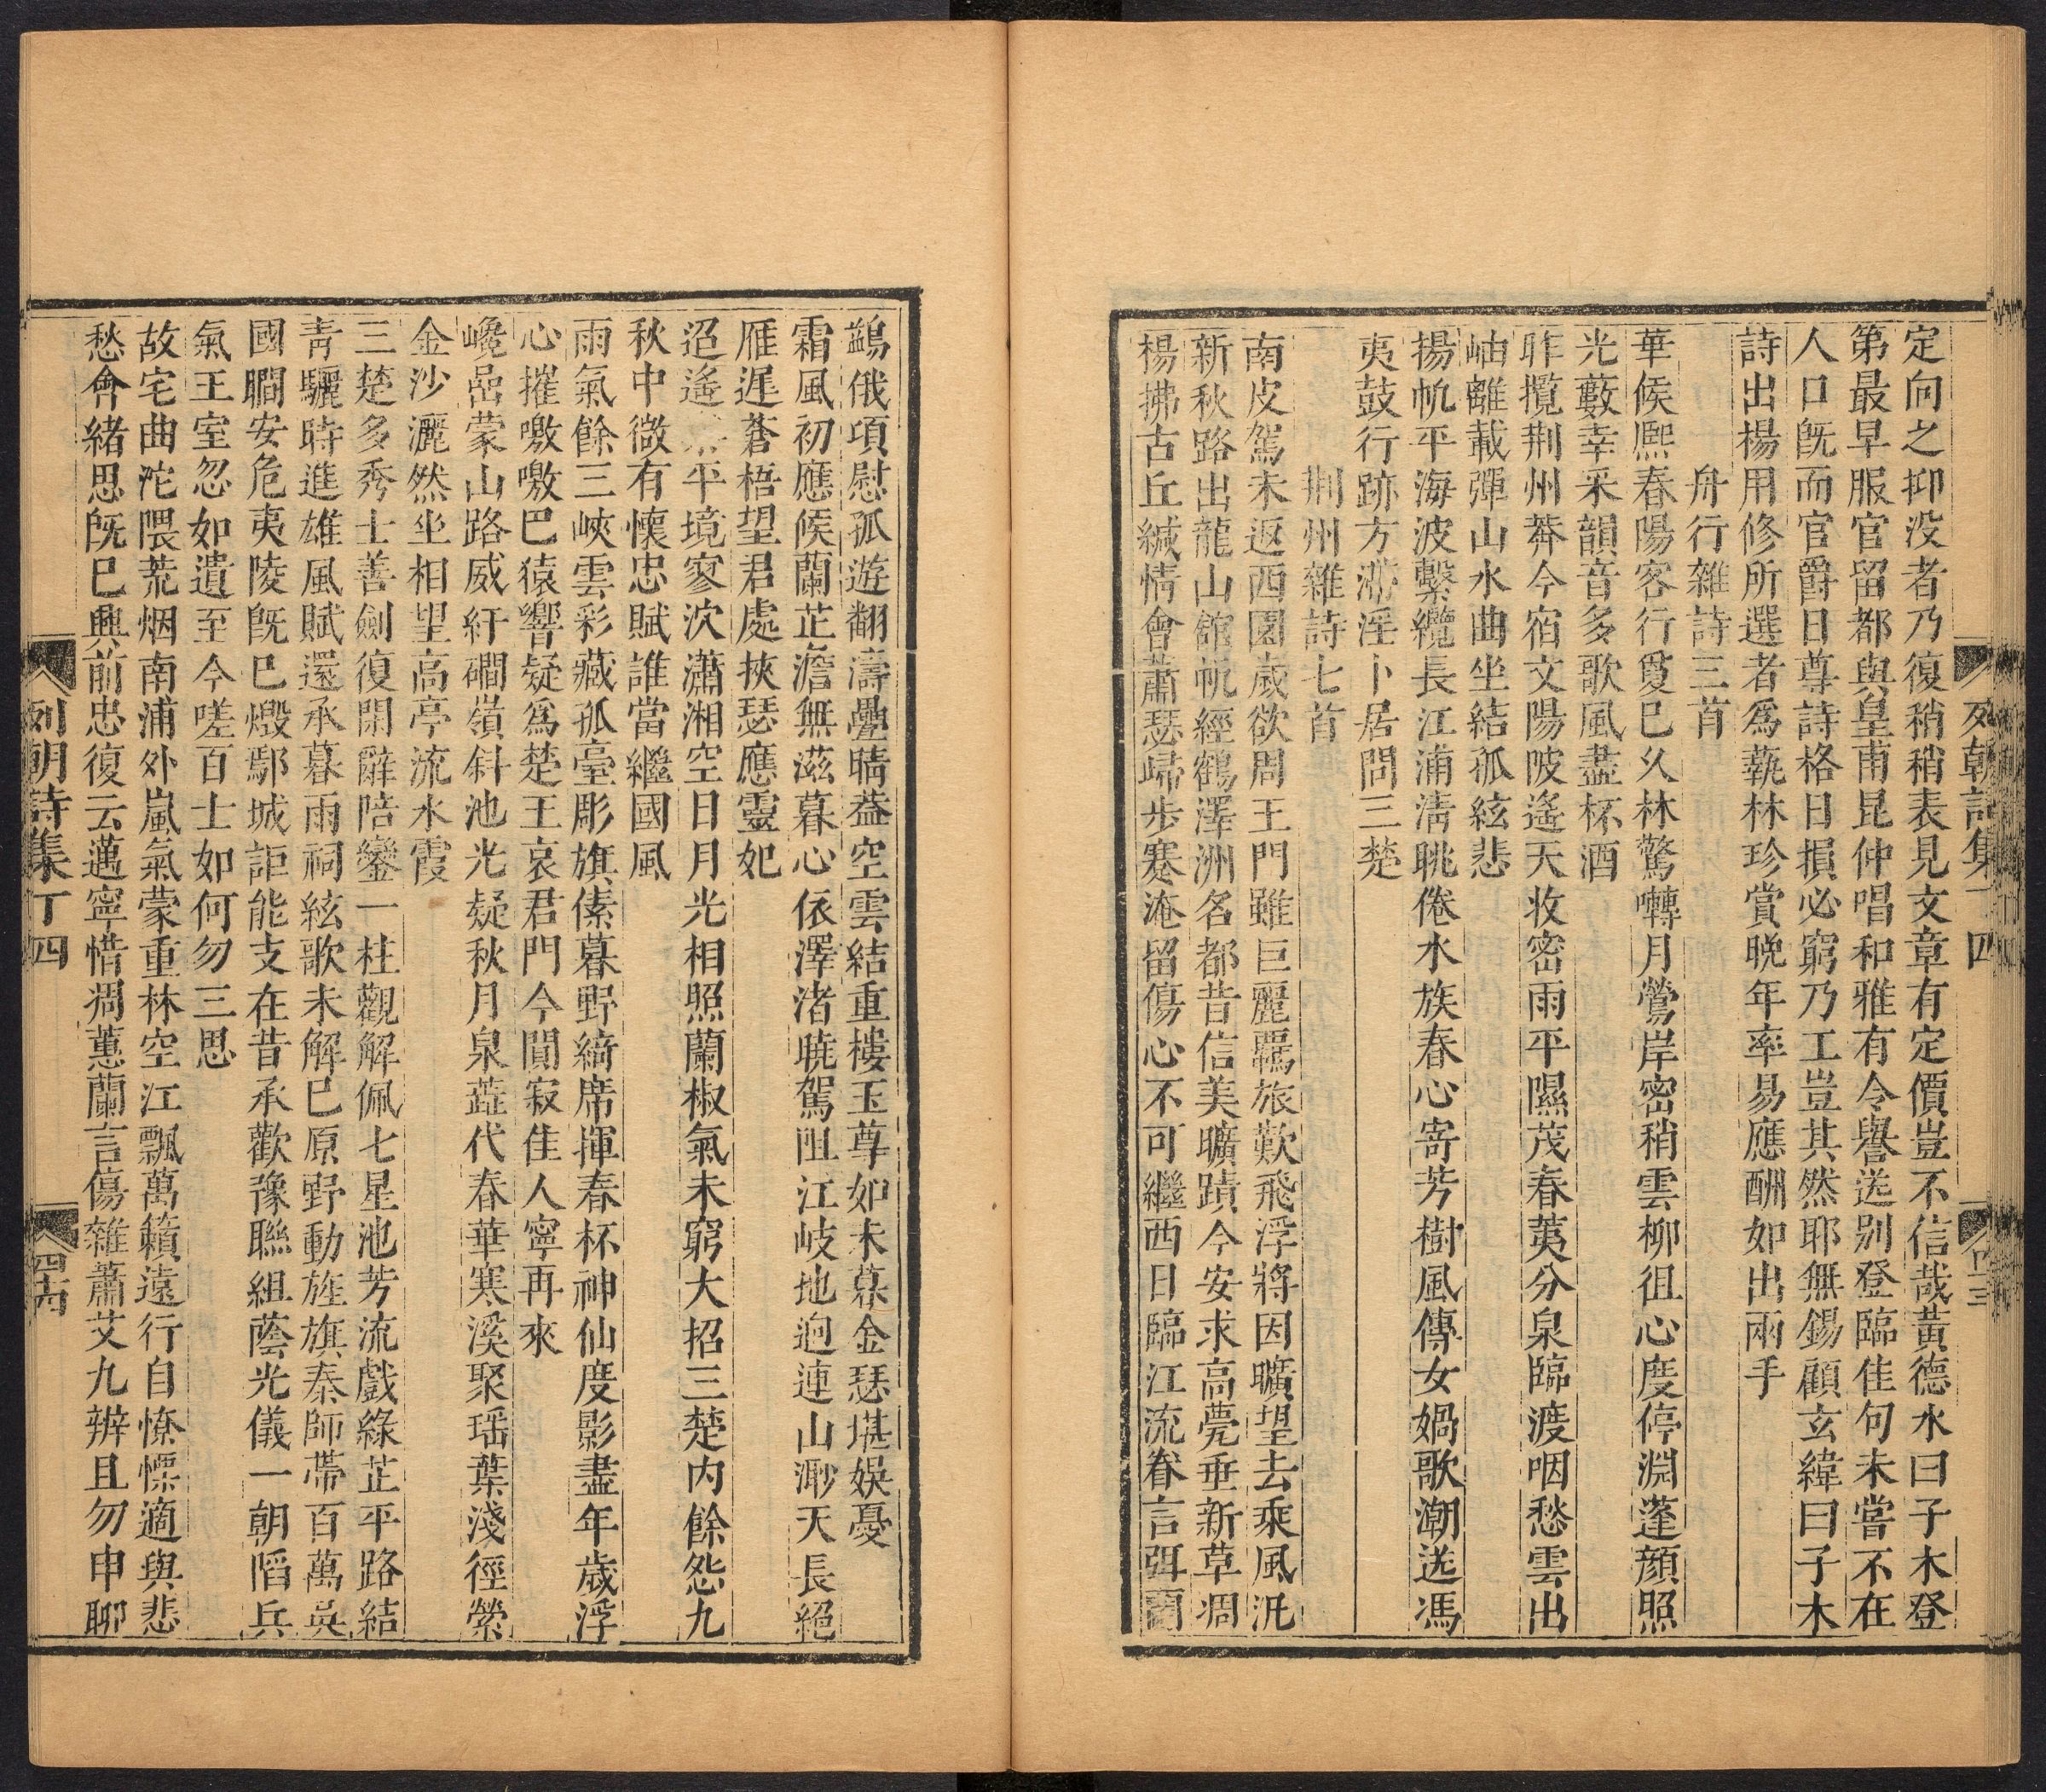 定向之抑没者乃復稍稍表見文章有定價豈不信哉黃德水曰子木登
第最早服官留都與皇甫昆仲唱和雅有令譽送别登臨佳句未嘗不在
人口旣而官爵日尊詩格日損必窮乃工豈其然耶無錫顧玄緯曰子木
詩出楊用修所選者爲蓺林珍賞晚年率易應酬如出兩手
舟行雜詩三首
華候熙春陽客行夐已久林驚囀月鶯岸密稍雲柳徂心度停淵蓬顔照
光藪幸采韻音多歌風盡杯酒
昨攬荆州莽今宿文陽陂遙天收密雨平隰茂春荑分泉臨渡咽愁雲出
岫離載彈山水曲坐結孤絃悲
揚帆平海波繫纜長江浦淸眺倦水族春心寄芳樹風傳女媧歌潮送馮
夷鼓行跡方游淫卜居問三楚
荆州雜詩七首
南皮駕未返西園歲欲周王門雖巨麗羈旅歎飛浮將因曠望去乘風汎
新秋路出龍山館帆經鶴澤洲名都昔信美曠蹟今安求高甍垂新草凋
楊拂古丘緘情會蕭瑟歸步蹇淹留傷心不可繼西日臨江流眷言弭蘭
鷁俄項慰孤遊翻濤疊晴葢空雲結重樓玉尊如未暮金瑟堪娛憂
霜風初應候蘭芷澹無滋暮心依澤渚曉駕阻江岐地迥連山渺天長絕
雁遲蒼梧望君處挾瑟應靈妃
迢遙平境寥泬瀟湘空日月光相照蘭椒氣未窮大招三楚内餘怨九
秋中微有懷忠賦誰當繼國風
雨氣餘三峽雲彩藏孤臺彫旗傃暮野綺席揮春杯神仙度影盡年歲浮
心摧噭噭巴猿響疑爲楚王哀君門今闃寂佳人寧再來
巉嵒蒙山路威紆磵嶺斜池光疑秋月泉蘤代春華寒溪聚瑶葉淺徑縈
金沙灑然坐相望高亭流水霞
三楚多秀士善劍復閑辭陪鑾一柱觀解佩七星池芳流戲綠芷平路結
靑驪時進雄風賦還承暮雨祠絃歌未解已原野動旌旗秦師帶百萬吳
國瞷安危夷陵旣已燬鄢城詎能支在昔承歡豫聯組蔭光儀一朝㬂兵
氣王室忽如遺至今嗟百士如何勿三思
故宅曲沱隈荒烟南浦外嵐氣蒙重林空江飄萬籟遠行自憭慄適與悲
愁會緒思旣已興前忠復云邁寧惜凋蕙蘭言傷雜蕭艾九辨且勿申聊
列朝詩集丁四
四